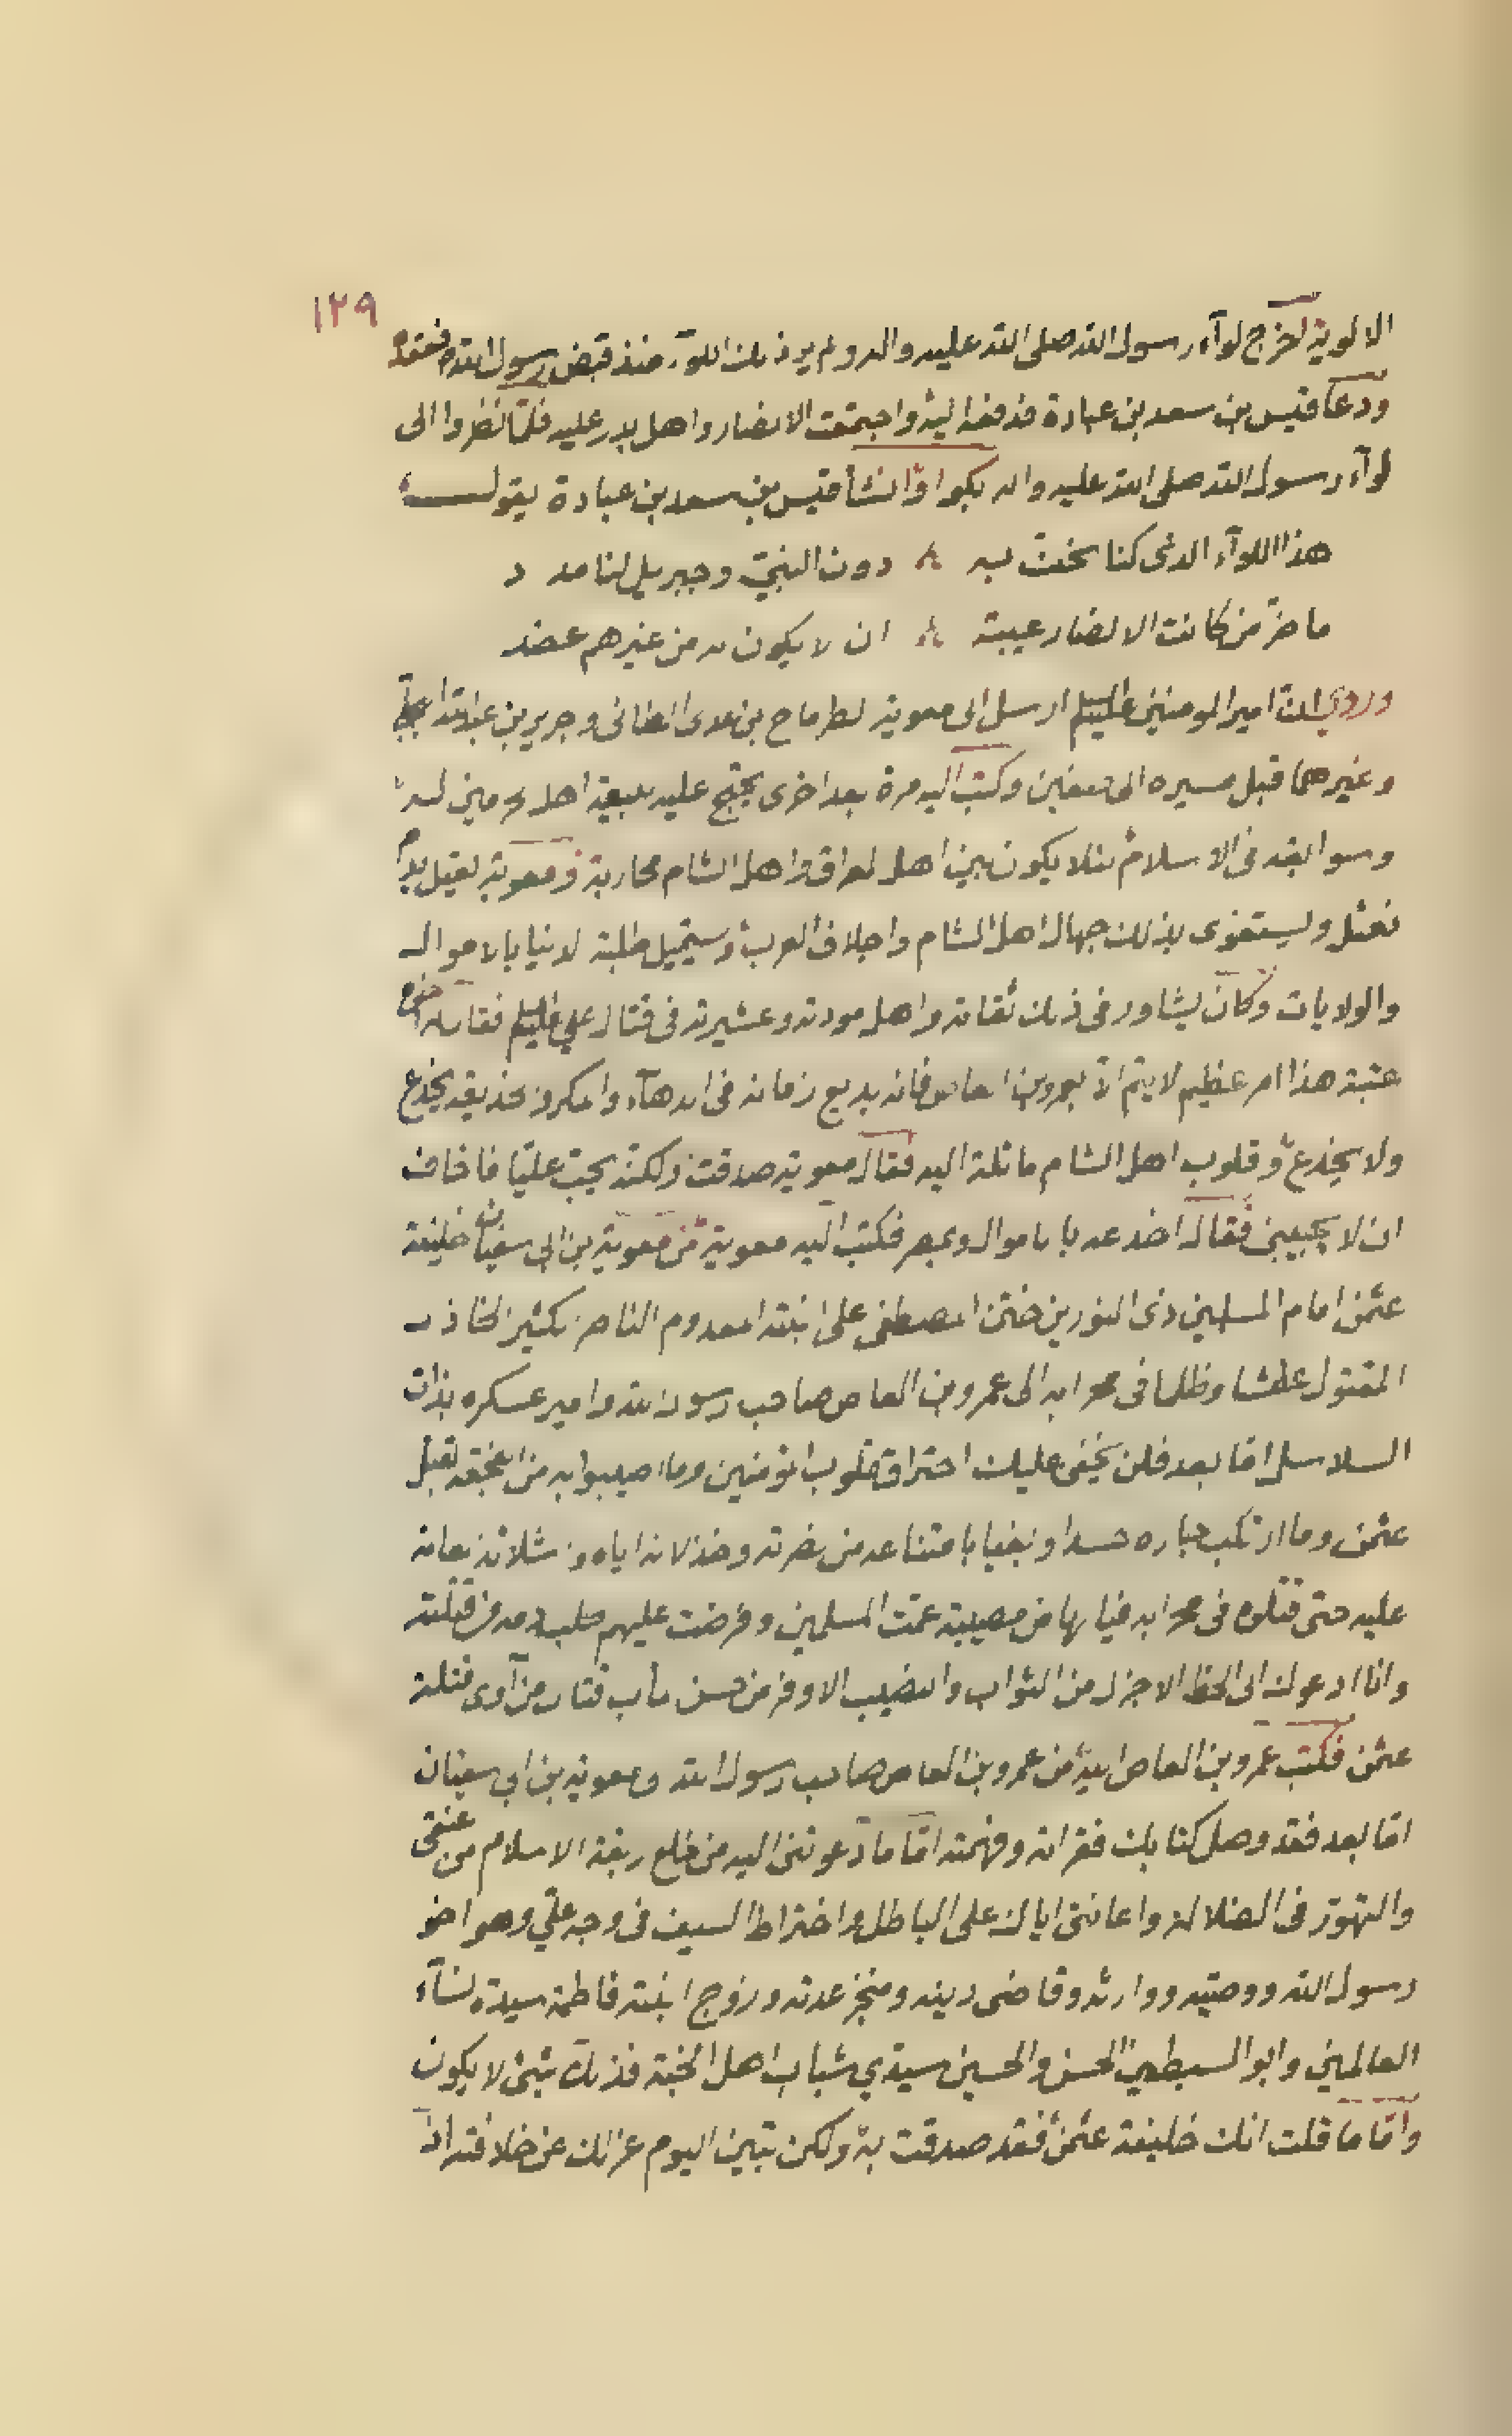 ١٢٩
الالوية اخرج لوآء رسول الله صلى الله عليه واله ولم ير ذلك اللوآء منذ قبض رسول الله فعقده
ودعا قيس بن سعد بن عبادة فدفعه اليه واجتمعت الانصار واهل بدر عليه فلما نظروا الى
لوآء رسول الله صلى الله عليه واله بكوا وانشأ قيس بن سعد بن عبادة يقول
هذا اللوآء الذى كنا نحف به دون النبي وجبريل لنا مدد
ما ضر من كانت الانصار عيبته ان لا يكون له من غيرهم عضد
وروى ان امير المومنين عليه السلم ارسل الى معوية الطرماح بن عدى الطائى وجرير بن عبد الله البجلي
وغيرهما قبل مسيره الى صفين وكتب اليه مرة بعد اخرى يحتج عليه ببيعة اهل الحرمين له
وسوابقه فى الاسلام لئلا يكون بين اهل العراق واهل الشام محاربة ومعوية يعتل بدم
نعثل ويستغوى بذلك جهال اهل الشام واجلاف العرب ويستميل طلبة الدنيا بالاموال
والولايات وكان يشاور فى ذلك ثقاته واهل مودته وعشيرته فى قتال علي عليه السلم فقال له اخوه
عتبة هذا امر عظيم لا يتم الا بعمرو بن العاص فانه بديع زمانه فى الدهآء والمكر وخديعة يخدع
ولا يخدع وقلوب اهل الشام مائلة اليه فقال معوية صدقت ولكنه يحب عليا فاخاف
ان لا يجيبنى فقال اخدعه بالاموال وبمصر فكتب اليه معوية من معوية بن ابى سفيان خليفة
عثمن امام المسلمين ذى النورين ختن المصطفى على ابنته المعدوم الناصر الكثير الخاذل
المقتول عطشا وظلما فى محرابه الى عمرو بن العاص صاحب رسول الله وامير عسكره بذات
السلاسل اما بعد فلن يخفى عليك احتراق قلوب المؤمنين وما اصيبوا به من الفجعة بقتل
عثمن وما ارتكب جاره حسدا وبغيا بامتناعه من نصرته وخذلانه اياه واشلائه العامة
عليه حتى قتلوه فى محرابه فيا لها من مصيبة عمت المسلمين وفرضت عليهم طلب دمه من قتلته
وانا ادعوك الى الحظ الاجزل من الثواب والنصيب الاوفر من حسن المآب بقتال من آوى قتلة
عثمن فكتب عمرو بن العاص اليه من عمرو بن العاص صاحب رسول الله الى معوية بن ابى سفيان
اما بعد فقد وصل كتابك فقراته وفهمته اما ما دعوتنى اليه من خلع ربقة الاسلام من عنقى
والتهور فى الضلالة واعانتى اياك على الباطل واختراط السيف فى وجه علي وهو اخو
رسول الله ووصيه ووارثه وقاضى دينه ومنجز عدته وزوج ابنته فاطمة سيدة نسآء
العالمين وابو السبطين الحسن والحسين سيدي شباب اهل الجنة فذلك شئ لا يكون
واما ما قلت انك خليفة عثمن فقد صدقت به ولكن تبين اليوم عزلك عن خلافته اذا